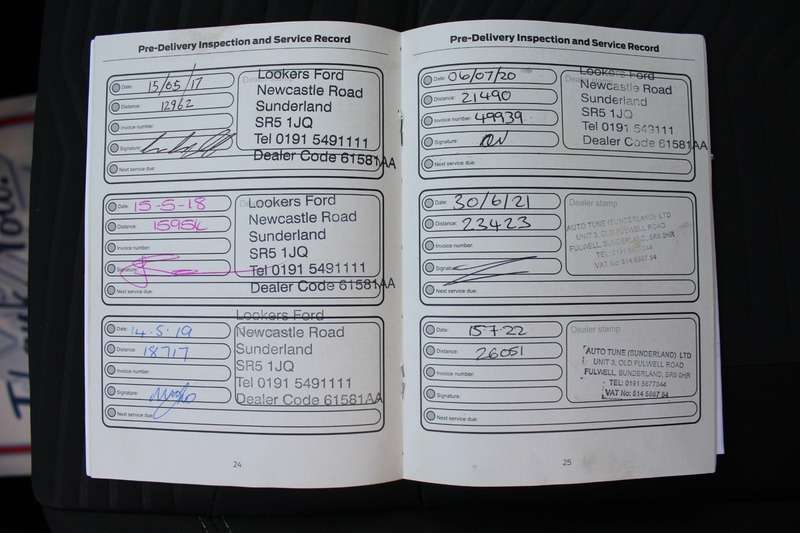 Pre-Delivery Inspection and Service Record
Date: 15/05/17
Distance: 12962
Invoice number:
Signature:
Next service due:
Lookers Ford
Newcastle Road
Sunderland
SR5 1JQ
Tel 0191 5491111
Dealer Code 61581AA
Date: 15-5-18
Distance:
Invoice number:
Signature:
Next service due:
Lookers Ford
Newcastle Road
Sunderland
SR5 1JQ
Tel 0191 5491111
Dealer Code 61581AA
Date: 14.5.19
Distance: 18717
Invoice number
Signature:
Next service due:
Lookers Ford
Newcastle Road
Sunderland
SR5 1JQ
Tel 0191 5491111
Dealer Code 61581AA
24
Pre-Delivery Inspection and Service Record
Date: 06/07/20
Distance: 21490
Invoice number: 49939
Signature:
Next service due:
Lookers Ford
Newcastle Road
Sunderland
SR5 1JQ
Tel 0191 5491111
Dealer Code 61581AA
Date: 30/6/21
Distance: 23423
Invoice number:
Signature:
Next service due:
Dealer stamp
AUTO TUNE (SUNDERLAND) LTD
UNIT 3, OLD FULWELL ROAD
FULWELL, SUNDERLAND, SR6 9HR
VAT No: 614 5667 94
Date: 15.7.22
Distance: 26051
Invoice number
Signature:
Next service due:
Dealer stamp
AUTO TUNE (SUNDERLAND) LTD
UNIT 3, OLD FULWELL ROAD
FULWELL, SUNDERLAND, SR6 9HR
TEL: 0191 5677344
VAT No: 614 5667 94
25